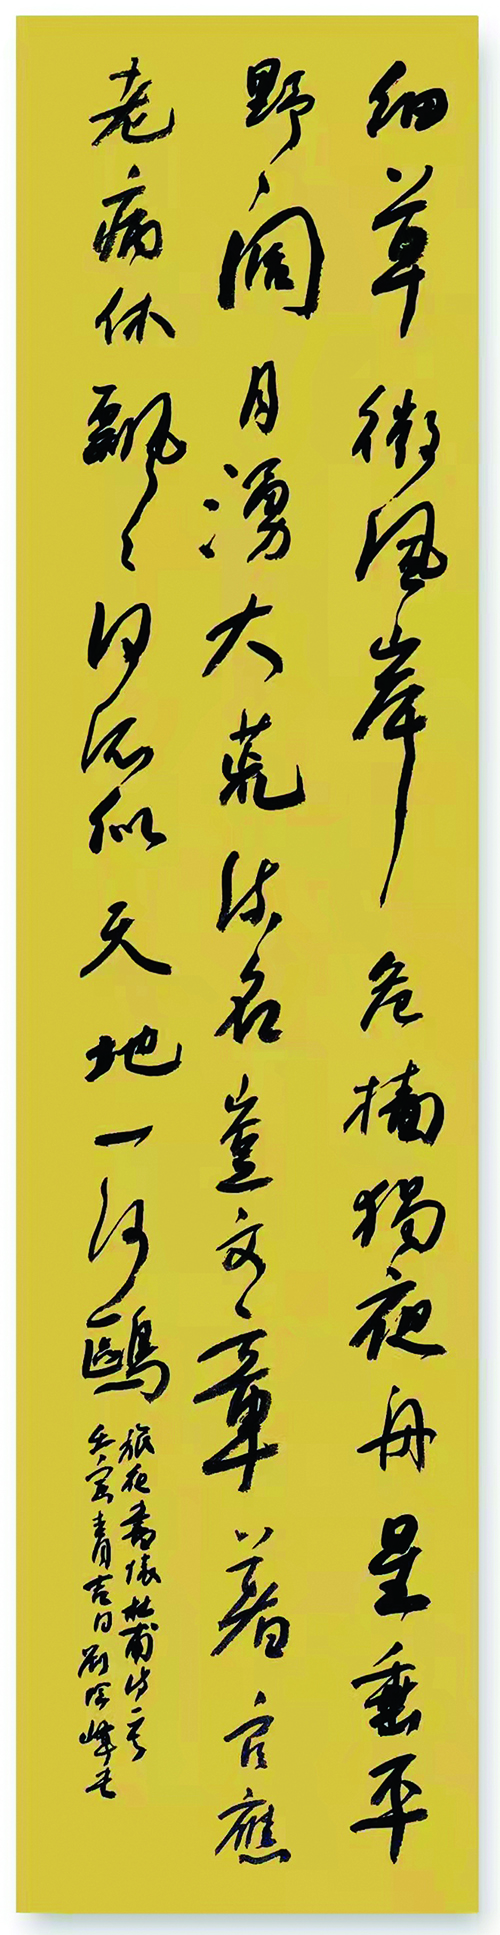 細草微風岸危檣獨夜舟星垂平
野闊月湧大荒流名豈文章著官應
老病休飄々何所似天地一沙鷗
旅夜書懷杜甫詩一首
壬寅春月吉日劉峰書